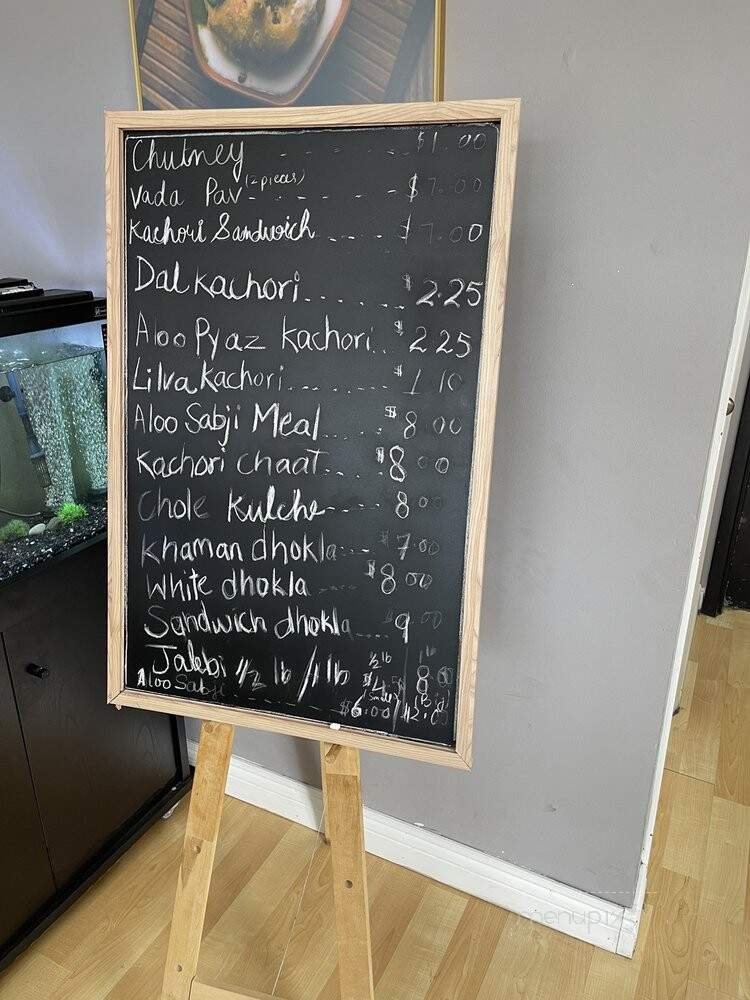 Chutney - - - - $1.00
Vada Pav (2 pieces) - - - - - $7.00
Kachori Sandwich ---- $7.00
Dal Kachori...... $2.25
Aloo Pyaz Kachori.. $2.25
Lilva Kachori...... $1.10
Aloo Sabji Meal.... $8.00
Kachori Chaat.... $8.00
Chole Kulche---- 8.00
Khaman dhokla--- $7.00
White dhokla --- $8.00
Sandwich dhokla.... 9.00
Jalebi 1/2 lb / 1 lb 1/2 lb 1 lb
(Small) (Big)
Aloo Sabji - - - - $6.00 / 12.0
menupix